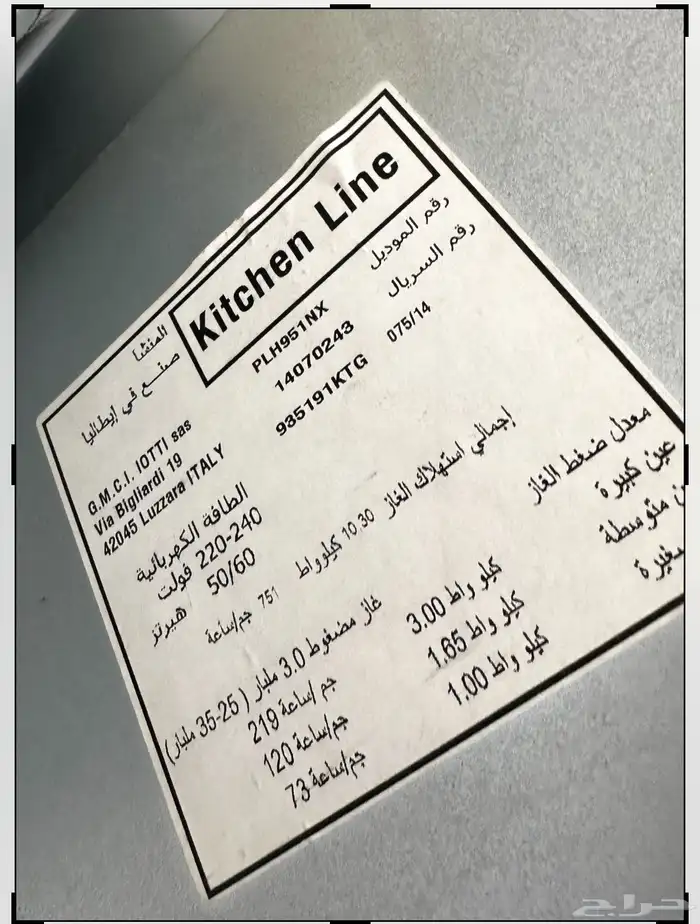 Kitchen Line
رقم الموديل
رقم السريال
PLH951NX
14070243
935191KTG
075/14
المنشا
صنع في إيطاليا
G.M.C.I. IOTTI sas
Via Bigliardi 19
42045 Luzzara ITALY
الطاقة الكهربائية
220-240 فولت
50/60 هيرتز
إجمالي استهلاك الغاز
10.30 كيلوواط
751 جم/ساعة
معدل ضغط الغاز
غاز مضغوط 3.0 مليار (25-35 مليار)
عين كبيرة
3.00 كيلو واط
219 جم/ساعة
متوسطة
1.65 كيلو واط
120 جم/ساعة
1.00 كيلو واط
73 جم/ساعة
حراج